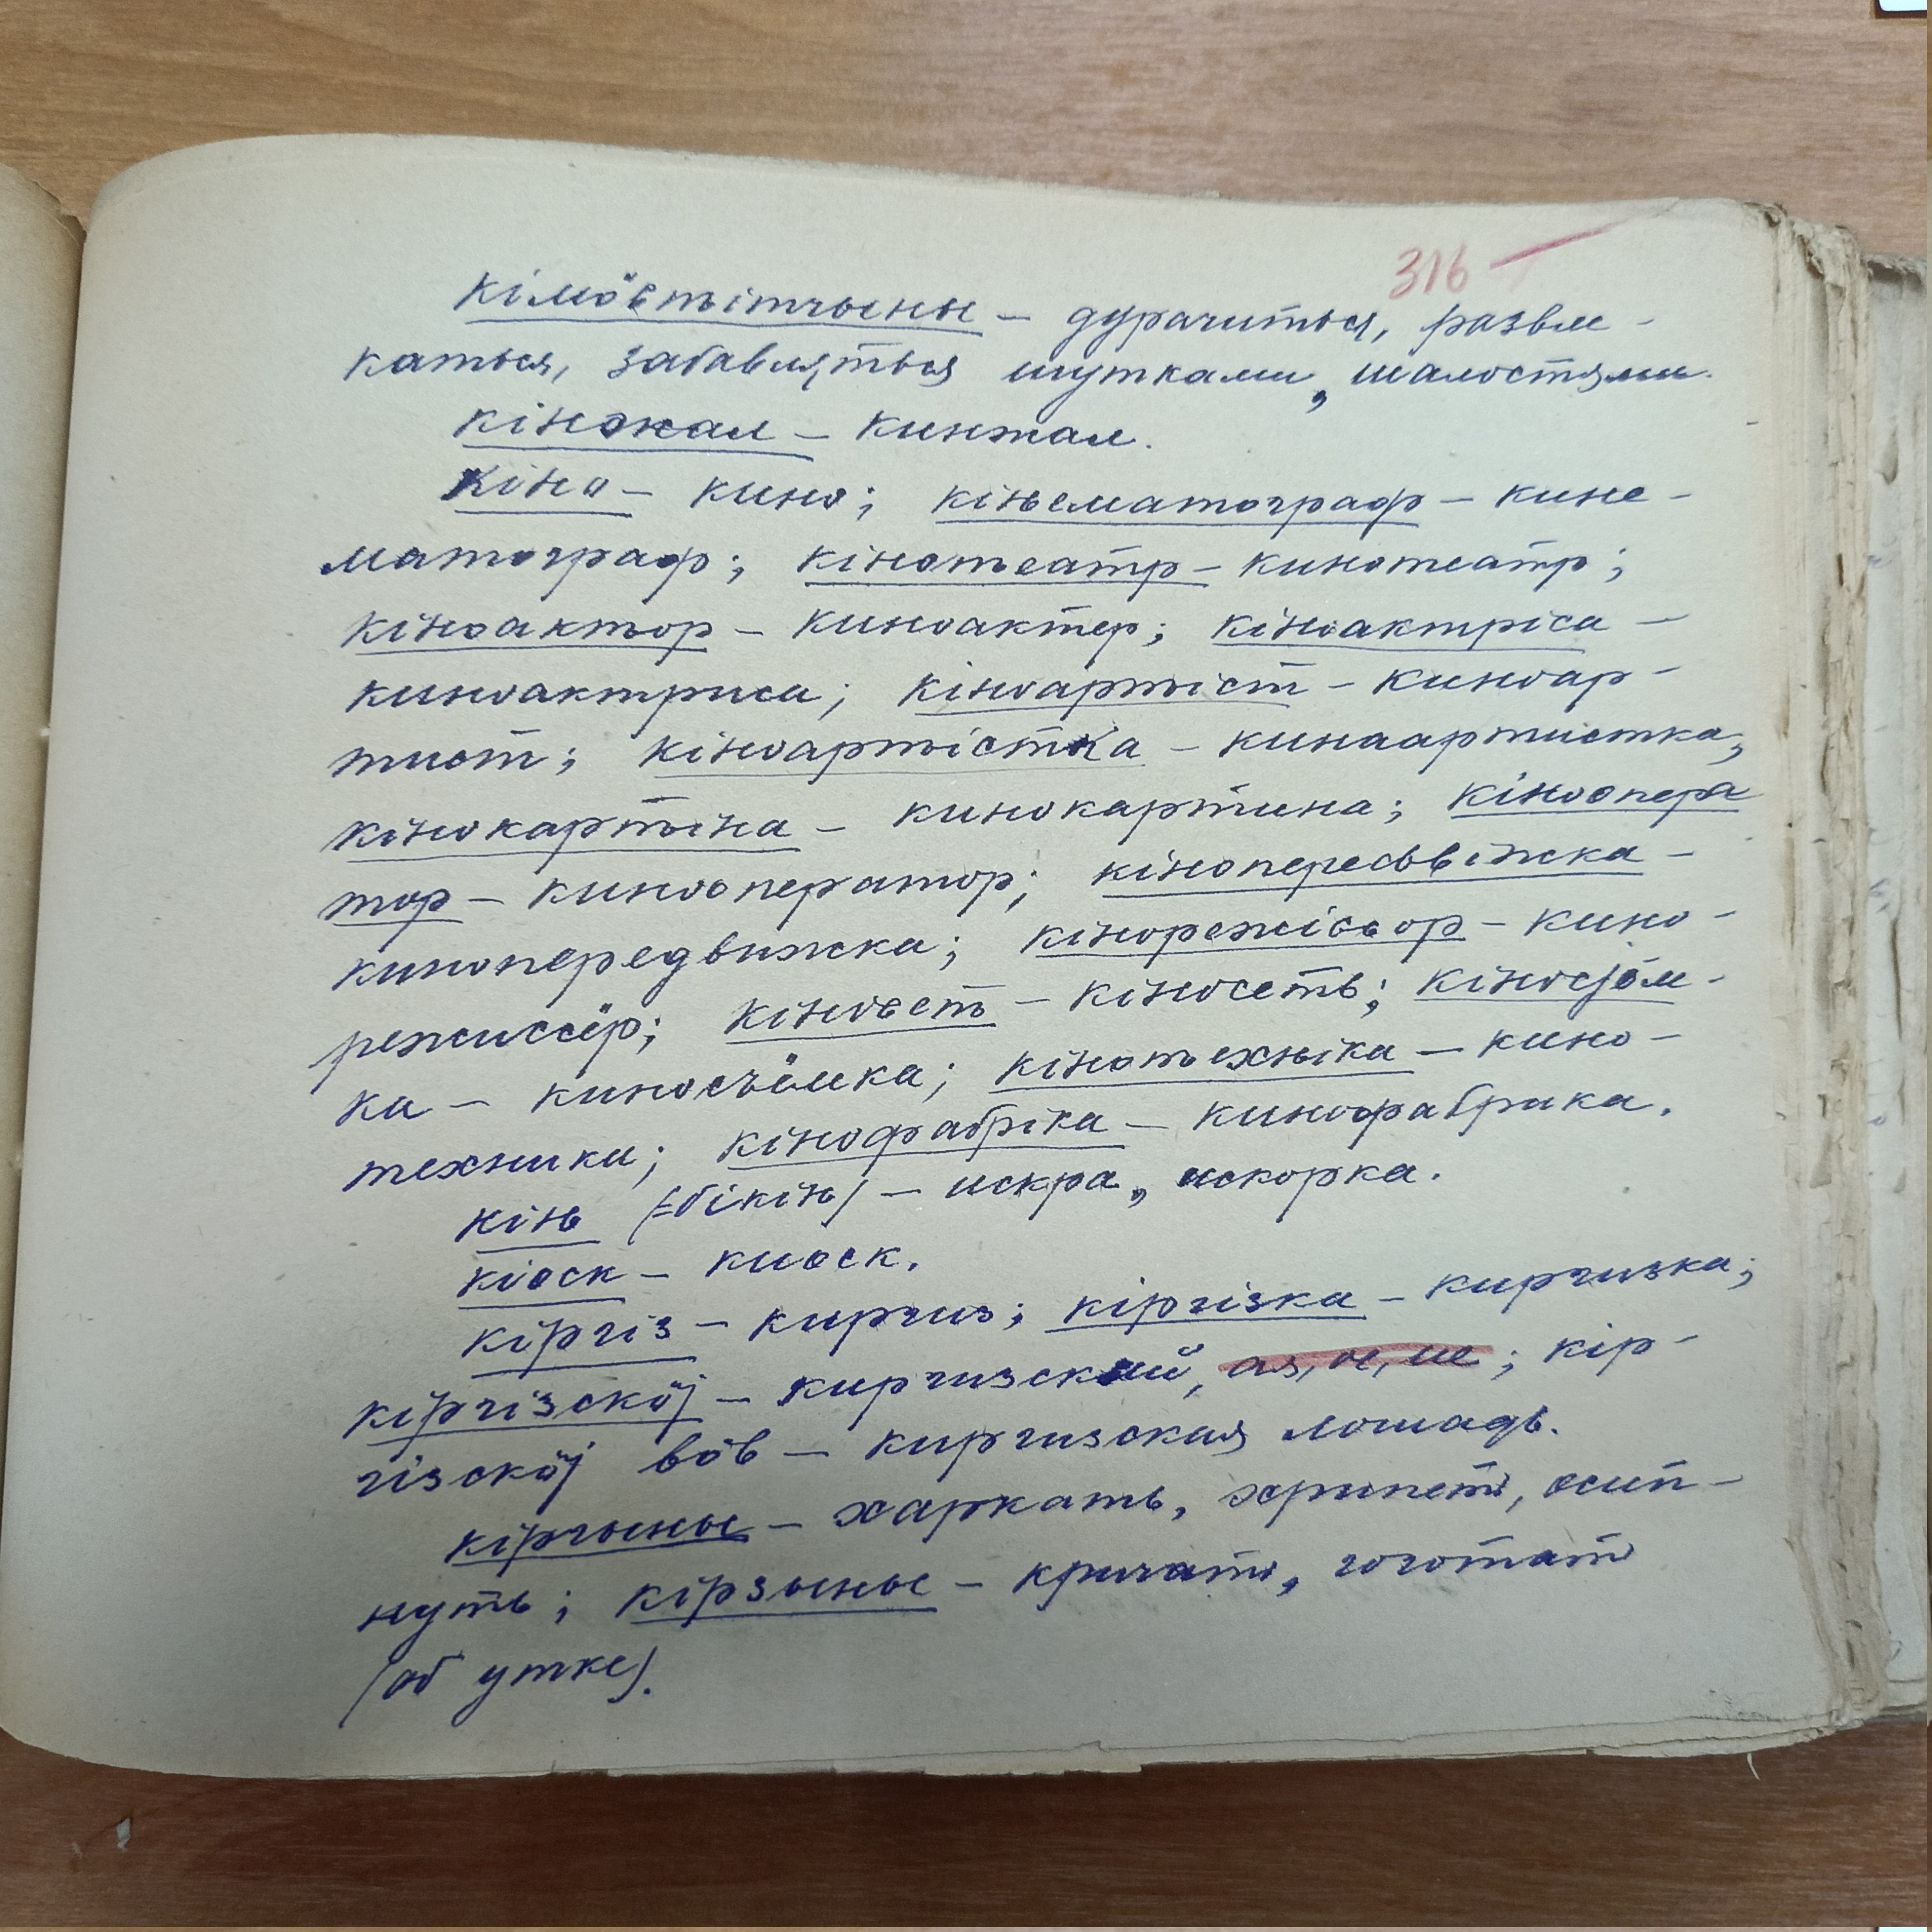 316
кімöстьітчыны – дурачиться, развле-
каться, забавляться шутками, шалостями.
кінжал – кинжал.
Кіно – кино; кінематограф – кине-
матограф; кінотеатр – кинотеатр;
кіноактьор – киноактер; кіноактріса –
киноактриса; кіноартьіст – киноар-
тист; кіноартьістка – кинаартистка;
кінокартьіна – кинокартина; кінаопера
тор – кинооператор; кінопередвіжка –
кинопередвижка; кінорежісьор – кино-
режиссёр; кіносеть – кіносеть; кіносјом-
ка – киносъёмка; кінотьехньіка – кино-
техника; кінофабріка – кинофабрика.
кінь (=бікінь) – искра, искорка.
кіоск – киоск.
кіргіз – киргиз; кіргізка – киргизка;
кіргізскöј – киргизский, ая, ое, ие; кір-
гізскöј вöв – киргизская лошадь.
кіргыны – харкать, хрипеть, осип-
нуть; кірзыны – кричать, гоготать
(об утке).